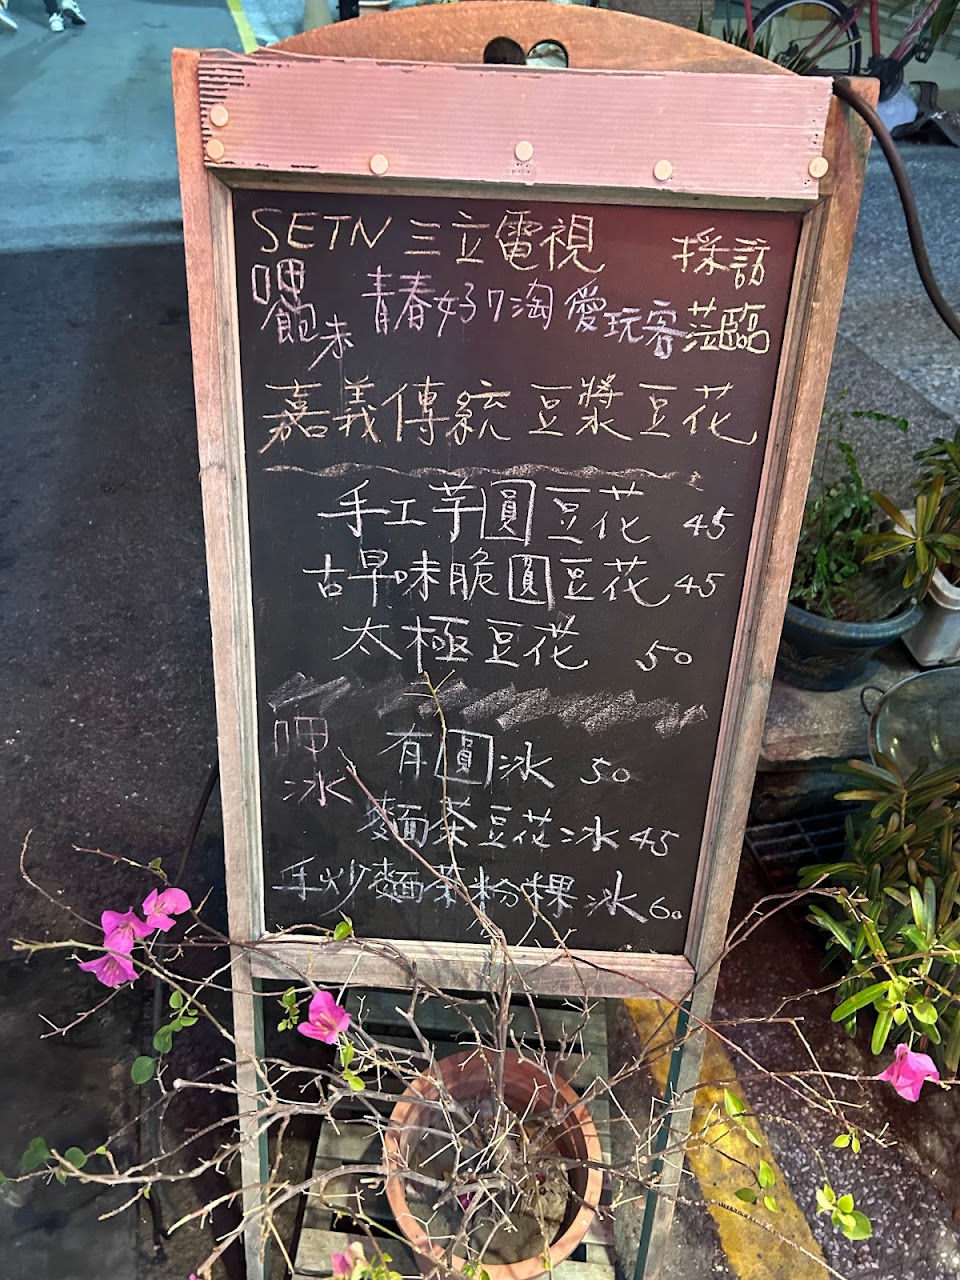 SETN 三立電視 採訪
呷飽未 青春好7淘 愛玩客 蒞臨
嘉義傳統豆漿豆花
手工芋圓豆花 45
古早味脆圓豆花 45
太極豆花 50
呷冰 有圓冰 50
麵茶豆花冰 45
手炒麵茶粉粿冰 60